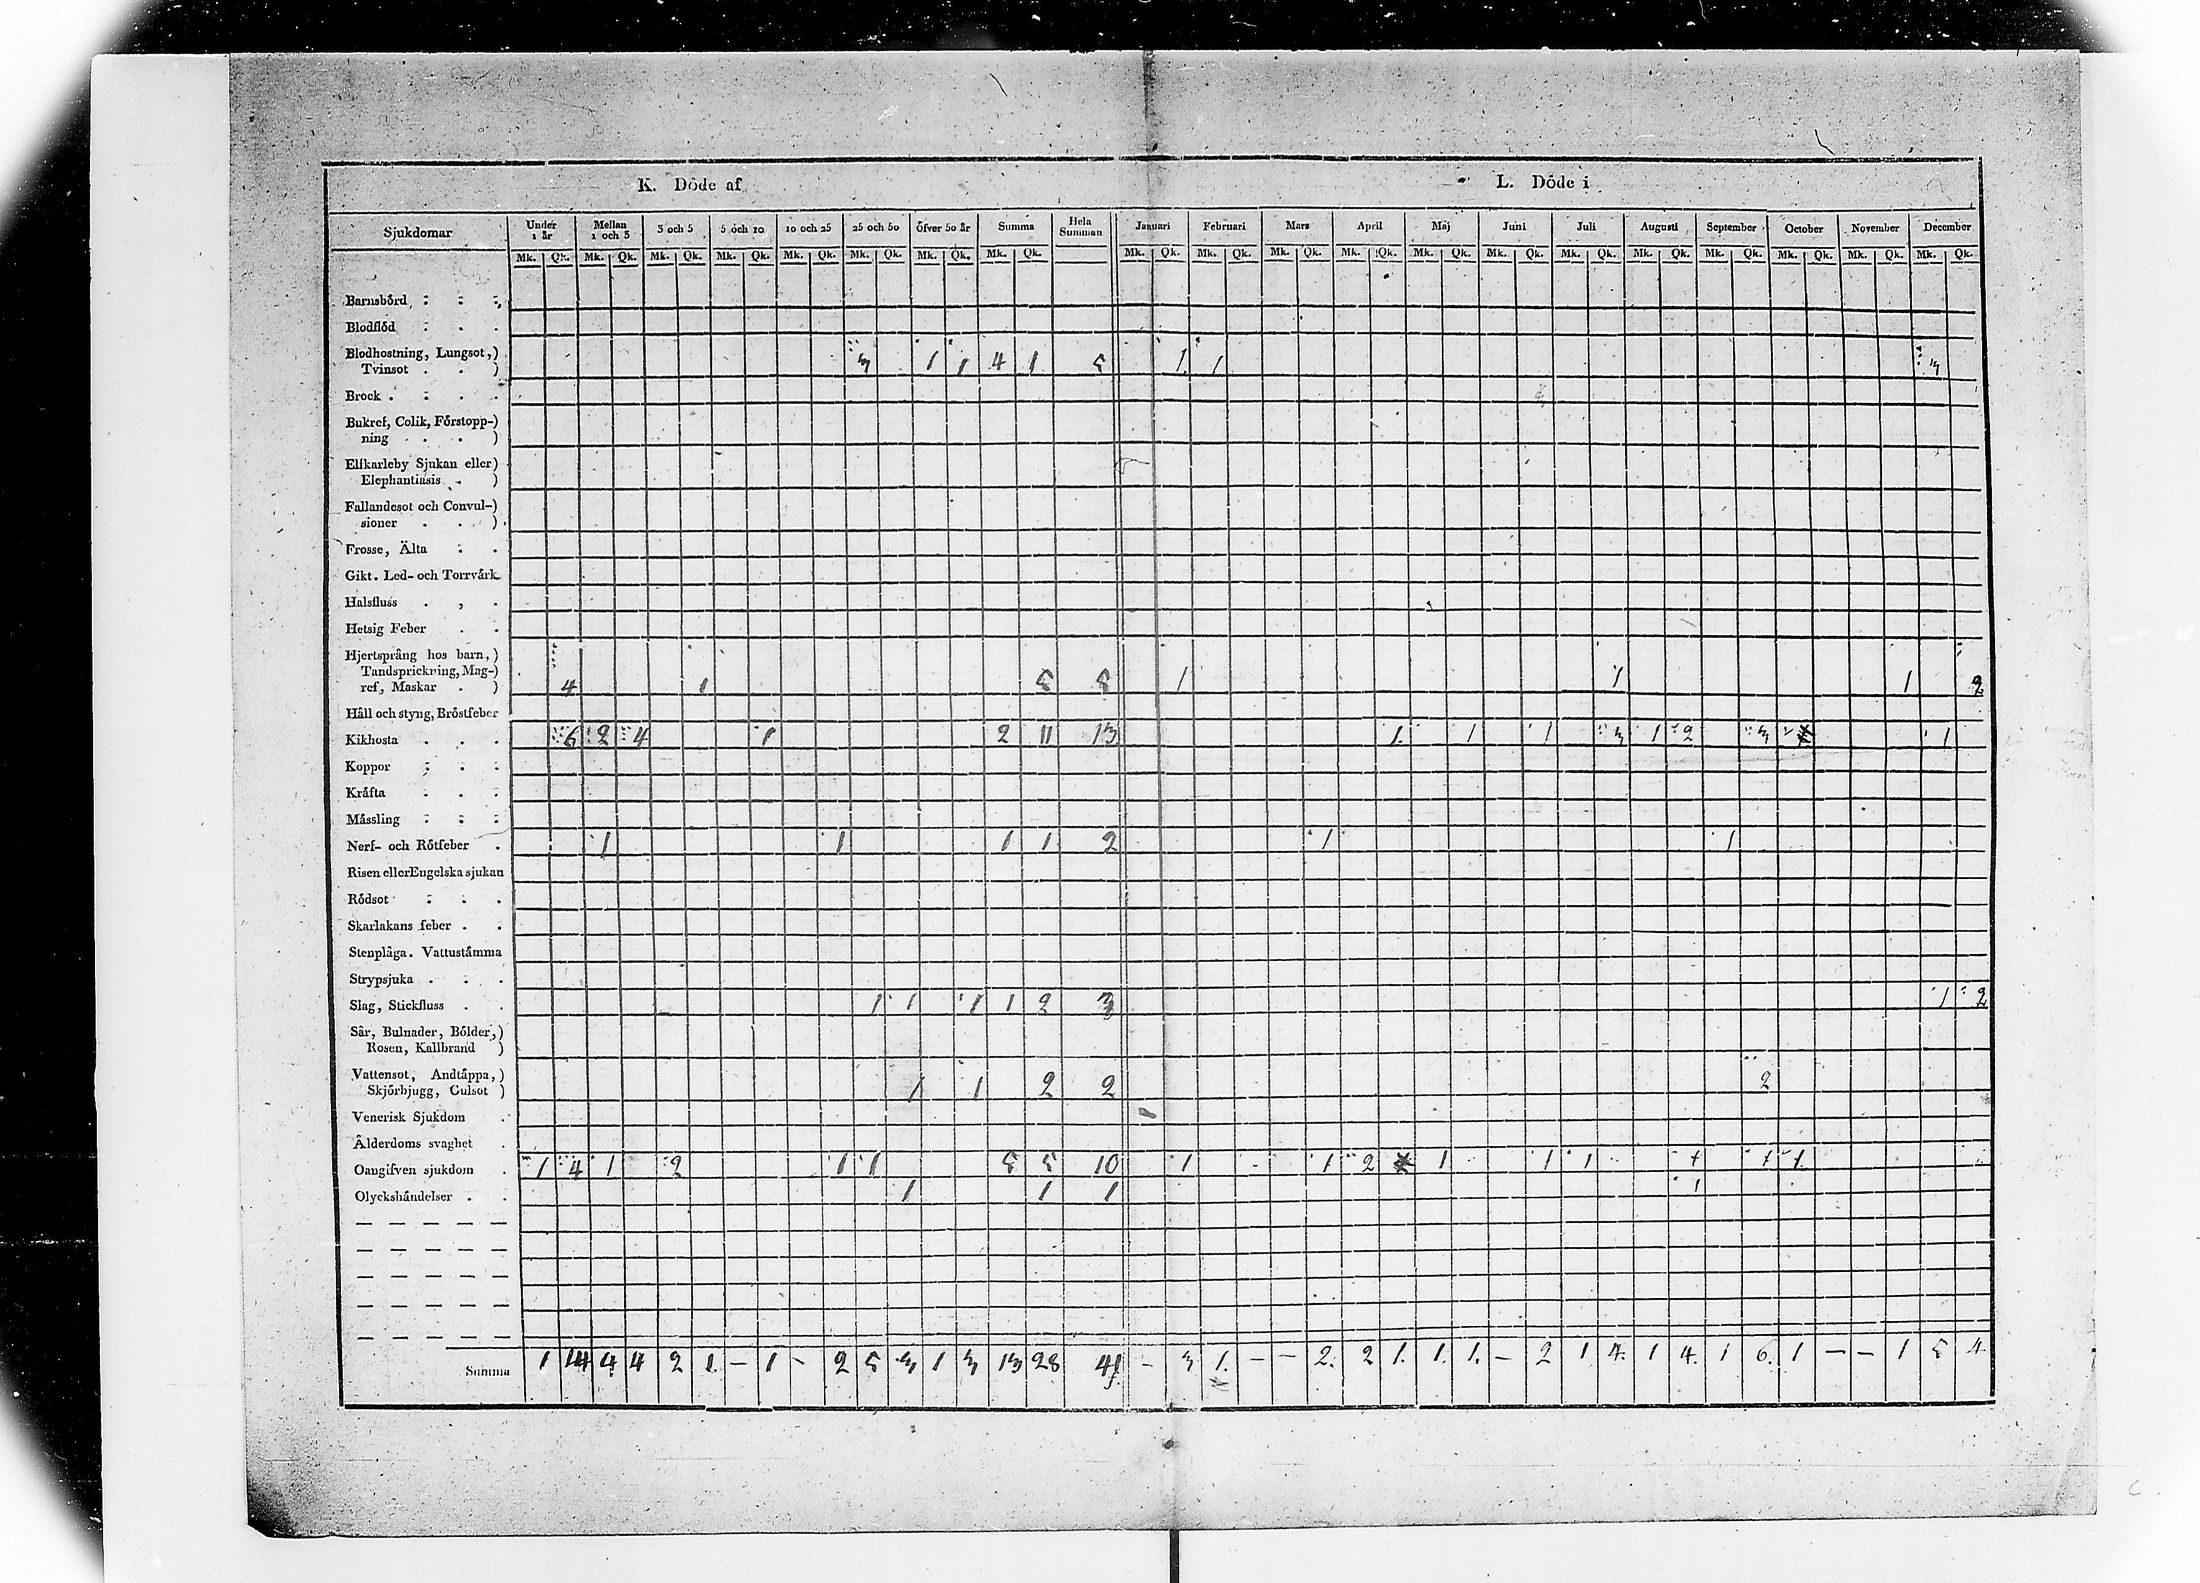 K. Döde af L. Döde i
Sjukdomar Under 1 år Mellan 1 och 3 3 och 5 5 och 10 10 och 25 25 och 50 Öfver 50 år Summa Hela Summan Januari Februari Mars April Maj Juni Juli Augusti September October November December
Mk. Qk. Mk. Qk. Mk. Qk. Mk. Qk. Mk. Qk. Mk. Qk. Mk. Qk. Mk. Qk. Mk. Qk. Mk. Qk. Mk. Qk. Mk. Qk. Mk. Qk. Mk. Qk. Mk. Qk. Mk. Qk. Mk. Qk. Mk. Qk. Mk. Qk. Mk. Qk.
Barnsbörd
Blodflöd
Blodhostning, Lungsot,)
Tvinsot . . ) 3 1 1 4 1 5 1 1 3
Brock
Bukref, Colik, Förstopp-)
ning . . )
Elfkarleby Sjukan eller)
Elephantiasis )
Fallandesot och Convul-)
sioner . . )
Frosse, Älta
Gikt. Led- och Torrvärk
Halsfluss
Hetsig Feber
Hjertsprång hos barn,)
Tandsprickning, Mag-)
ref, Maskar . ) 4 1 5 5 1 1 1 2
Håll och styng, Bröstfeber
Kikhosta 6 2 4 1 2 11 13 1 1 1 3 1 2 3 1
Koppor
Kräfta
Mässling
Nerf- och Rötfeber 1 1 1 1 2 1 1
Risen eller Engelska sjukan
Rödsot
Skarlakans feber
Stenplåga. Vattustämma
Strypsjuka
Slag, Stickfluss 1 1 1 1 2 3 1 2
Sår, Bulnader, Bölder,)
Rosen, Kallbrand )
Vattensot, Andtäppa,)
Skjörbjugg, Gulsot ) 1 1 2 2 2
Venerisk Sjukdom
Ålderdoms svaghet
Oangifven sjukdom 1 4 1 2 1 1 5 5 10 1 1 2 1 1 1 1 1 1
Olyckshändelser 1 1 1 1
Summa 1 14 4 4 2 1 – 1 – 2 5 3 1 3 13 28 41 – 3 1. – – 2. 2 1. 1. 1. – 2 1 4. 1 4. 1 6. 1 – – 1 5 4